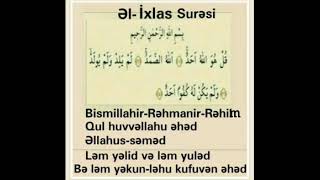 Əl-İxlas Surəsi
بِسْمِ اللهِ الرَّحْمٰنِ الرَّحِيمِ
قُلْ هُوَ اللهُ اَحَدٌ ﴿١﴾ اَللهُ الصَّمَدُ ﴿٢﴾ لَمْ يَلِدْ وَلَمْ يُولَدْ ﴿٣﴾
وَلَمْ يَكُنْ لَهُ كُفُوًا اَحَدٌ ﴿٤﴾
Bismillahir-Rəhmanir-Rəhim
Qul huvvəllahu əhəd
Əllahus-səməd
Ləm yəlid və ləm yuləd
Bə ləm yəkun-ləhu kufuvən əhəd